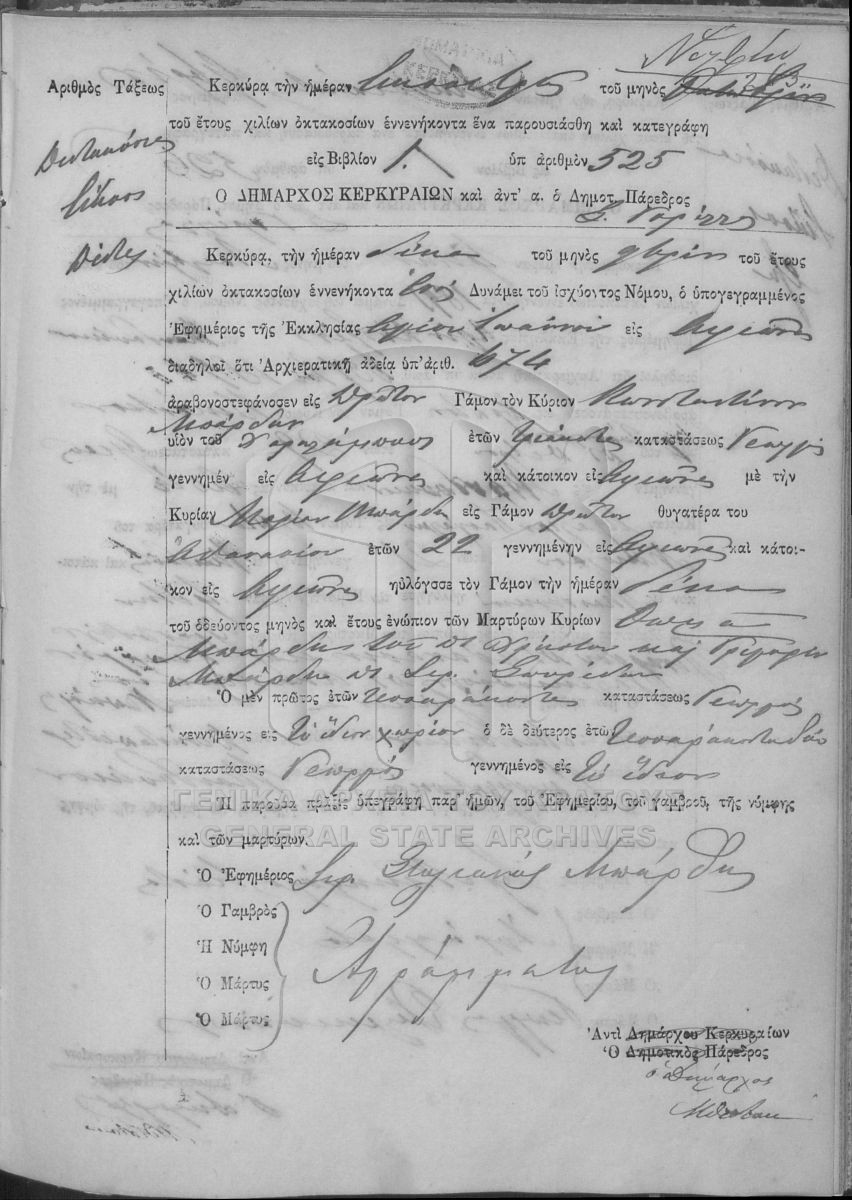 Νοεμβρίου
Ἀριθμὸς Τάξεως Κερκύρᾳ τὴν ἡμέραν εἰκοστὴν τοῦ μηνὸς
τοῦ ἔτους χιλίων ὀκτακοσίων ἐννενήκοντα ἕνα παρουσιάσθη καὶ κατεγράφη
Πεντακόσια
εἰς Βιβλίον 1. ὑπ ἀριθμὸν 525
εἴκοσι
Ὁ ΔΗΜΑΡΧΟΣ ΚΕΡΚΥΡΑΙΩΝ καὶ ἀντ' α. ὁ Δημοτ. Πάρεδρος
πέντε
Κερκύρᾳ, τὴν ἡμέραν δέκα τοῦ μηνὸς 9βρίου τοῦ ἔτους
χιλίων ὀκτακοσίων ἐννενήκοντα ἑνός Δυνάμει τοῦ ἰσχύοντος Νόμου, ὁ ὑπογεγραμμένος
Ἐφημέριος τῆς Ἐκκλησίας Ἁγίου Ἰωάννου εἰς Ἁγιοὺς
διαδηλοῖ ὅτι Ἀρχιερατικῇ ἀδείᾳ ὑπ' ἀριθ. 674
ἀραβονοστεφάνοσεν εἰς πρῶτον Γάμον τὸν Κύριον Κωνσταντῖνον
Μπάρδην
υἱὸν τοῦ Χαραλάμπους ἐτῶν τριάκοντα καταστάσεως Γεωργός
γεννημέν εἰς καὶ κάτοικον εἰς μὲ τὴν
Κυρίαν Μαρίαν Μπάρδη εἰς Γάμον πρῶτον θυγατέρα του
Ἀθανασίου ἐτῶν 22 γεννημένην εἰς καὶ κάτοι-
κον εἰς ηὐλόγσσε τὸν Γάμον τὴν ἡμέραν δέκα
τοῦ ὁδεύοντος μηνὸς καὶ ἔτους ἐνώπιον τῶν Μαρτύρων Κυρίων
Μπάρδης τοῦ π. Χρήστου καὶ Γρηγορίου
Μπάρδη π. Σπυρίδων
Ὁ μὲν πρῶτος ἐτῶν τεσσαράκοντα καταστάσεως Γεωργός
γεννημένος εἰς τὸ ἴδιον χωρίον ὁ δὲ δεύτερος ἐτῶ τεσσαράκοντα
καταστάσεως Γεωργός γεννημένος εἰς τὸ ἴδιον
ΓΕΝΙΚΑ ΑΡΧΕΙΑ ΤΟΥ ΚΡΑΤΟΥΣ
Ἡ παροῦσα πρᾶξις ὑπεγράφη παρ' ἡμῶν, τοῦ Ἐφημερίου, τοῦ γαμβροῦ, τῆς νύμφης
GENERAL STATE ARCHIVES
καὶ τῶν μαρτύρων.
Ὁ Ἐφημέριος Στυλιανός Μπάρδης
Ὁ Γαμβρὸς
Ἡ Νύμφη
Ἀγράμματοι
Ὁ Μάρτυς
Ὁ Μάρτυς
Ἀντὶ Δημάρχου Κερκυραίων
Ὁ Δημοτικὸς Πάρεδρος
ὁ Δήμαρχος